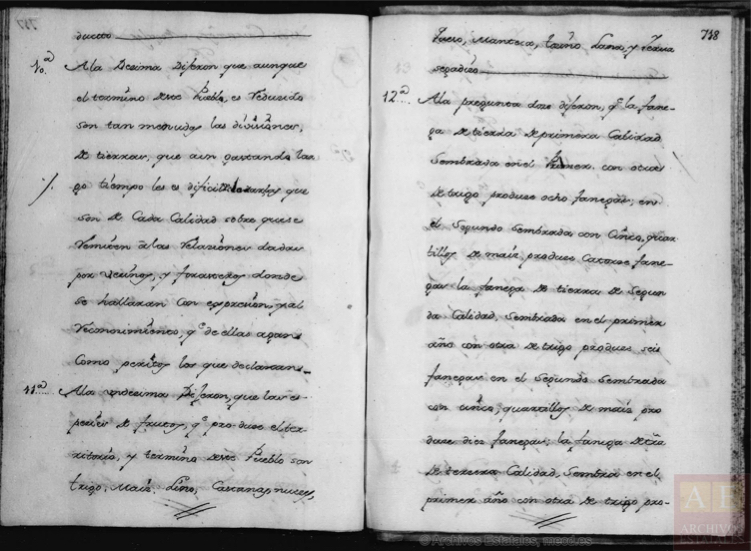 737
ducto
10.ª Ala Desima Dijeron que aunque
el termino de este Pueblo, es Reducido
son tan menudas las divisiones,
de tierras, que aun gastando lar-
go tiempo les es dificil declarar que
son de Cada Calidad sobre que se
Remiten â las Relaziones dadas
por vecinos, y forasteros donde
se hallaran con expresion, y al
Reconocimiento, q.e de ellas agan
Como peritos los que declaran
11.ª Ala undesima Dijeron, que las es-
pecies de frutos, q.e produce el ter-
ritorio, y termino de este Pueblo son
trigo, Maiz, Lino, Castanas, nueces,
738
queso, Manteca, Lana, y Yerva
segadiza
12.ª Ala pregunta doze dijeron, q.e la fane-
ga de tierra de primera Calidad
Sembrada en el Primer con otra
de trigo produce ocho fanegas; en
el Segundo Sembrada con Cinco, quar-
tillos de maiz, produce Catorse fane-
gas la fanega de tierra de Segun-
da Calidad, Sembrada en el primer
año con otra de trigo produce seis
fanegas en el Segundo Sembrada
con cinco, quartillos de maiz pro
duce dies fanegas; la faniga de tra
de tercera Calidad, Sembra en el
primer año con otra de trigo pro-
AE
ARCHIVOS
ESTATALES
© Archivos Estatales, mecd.es